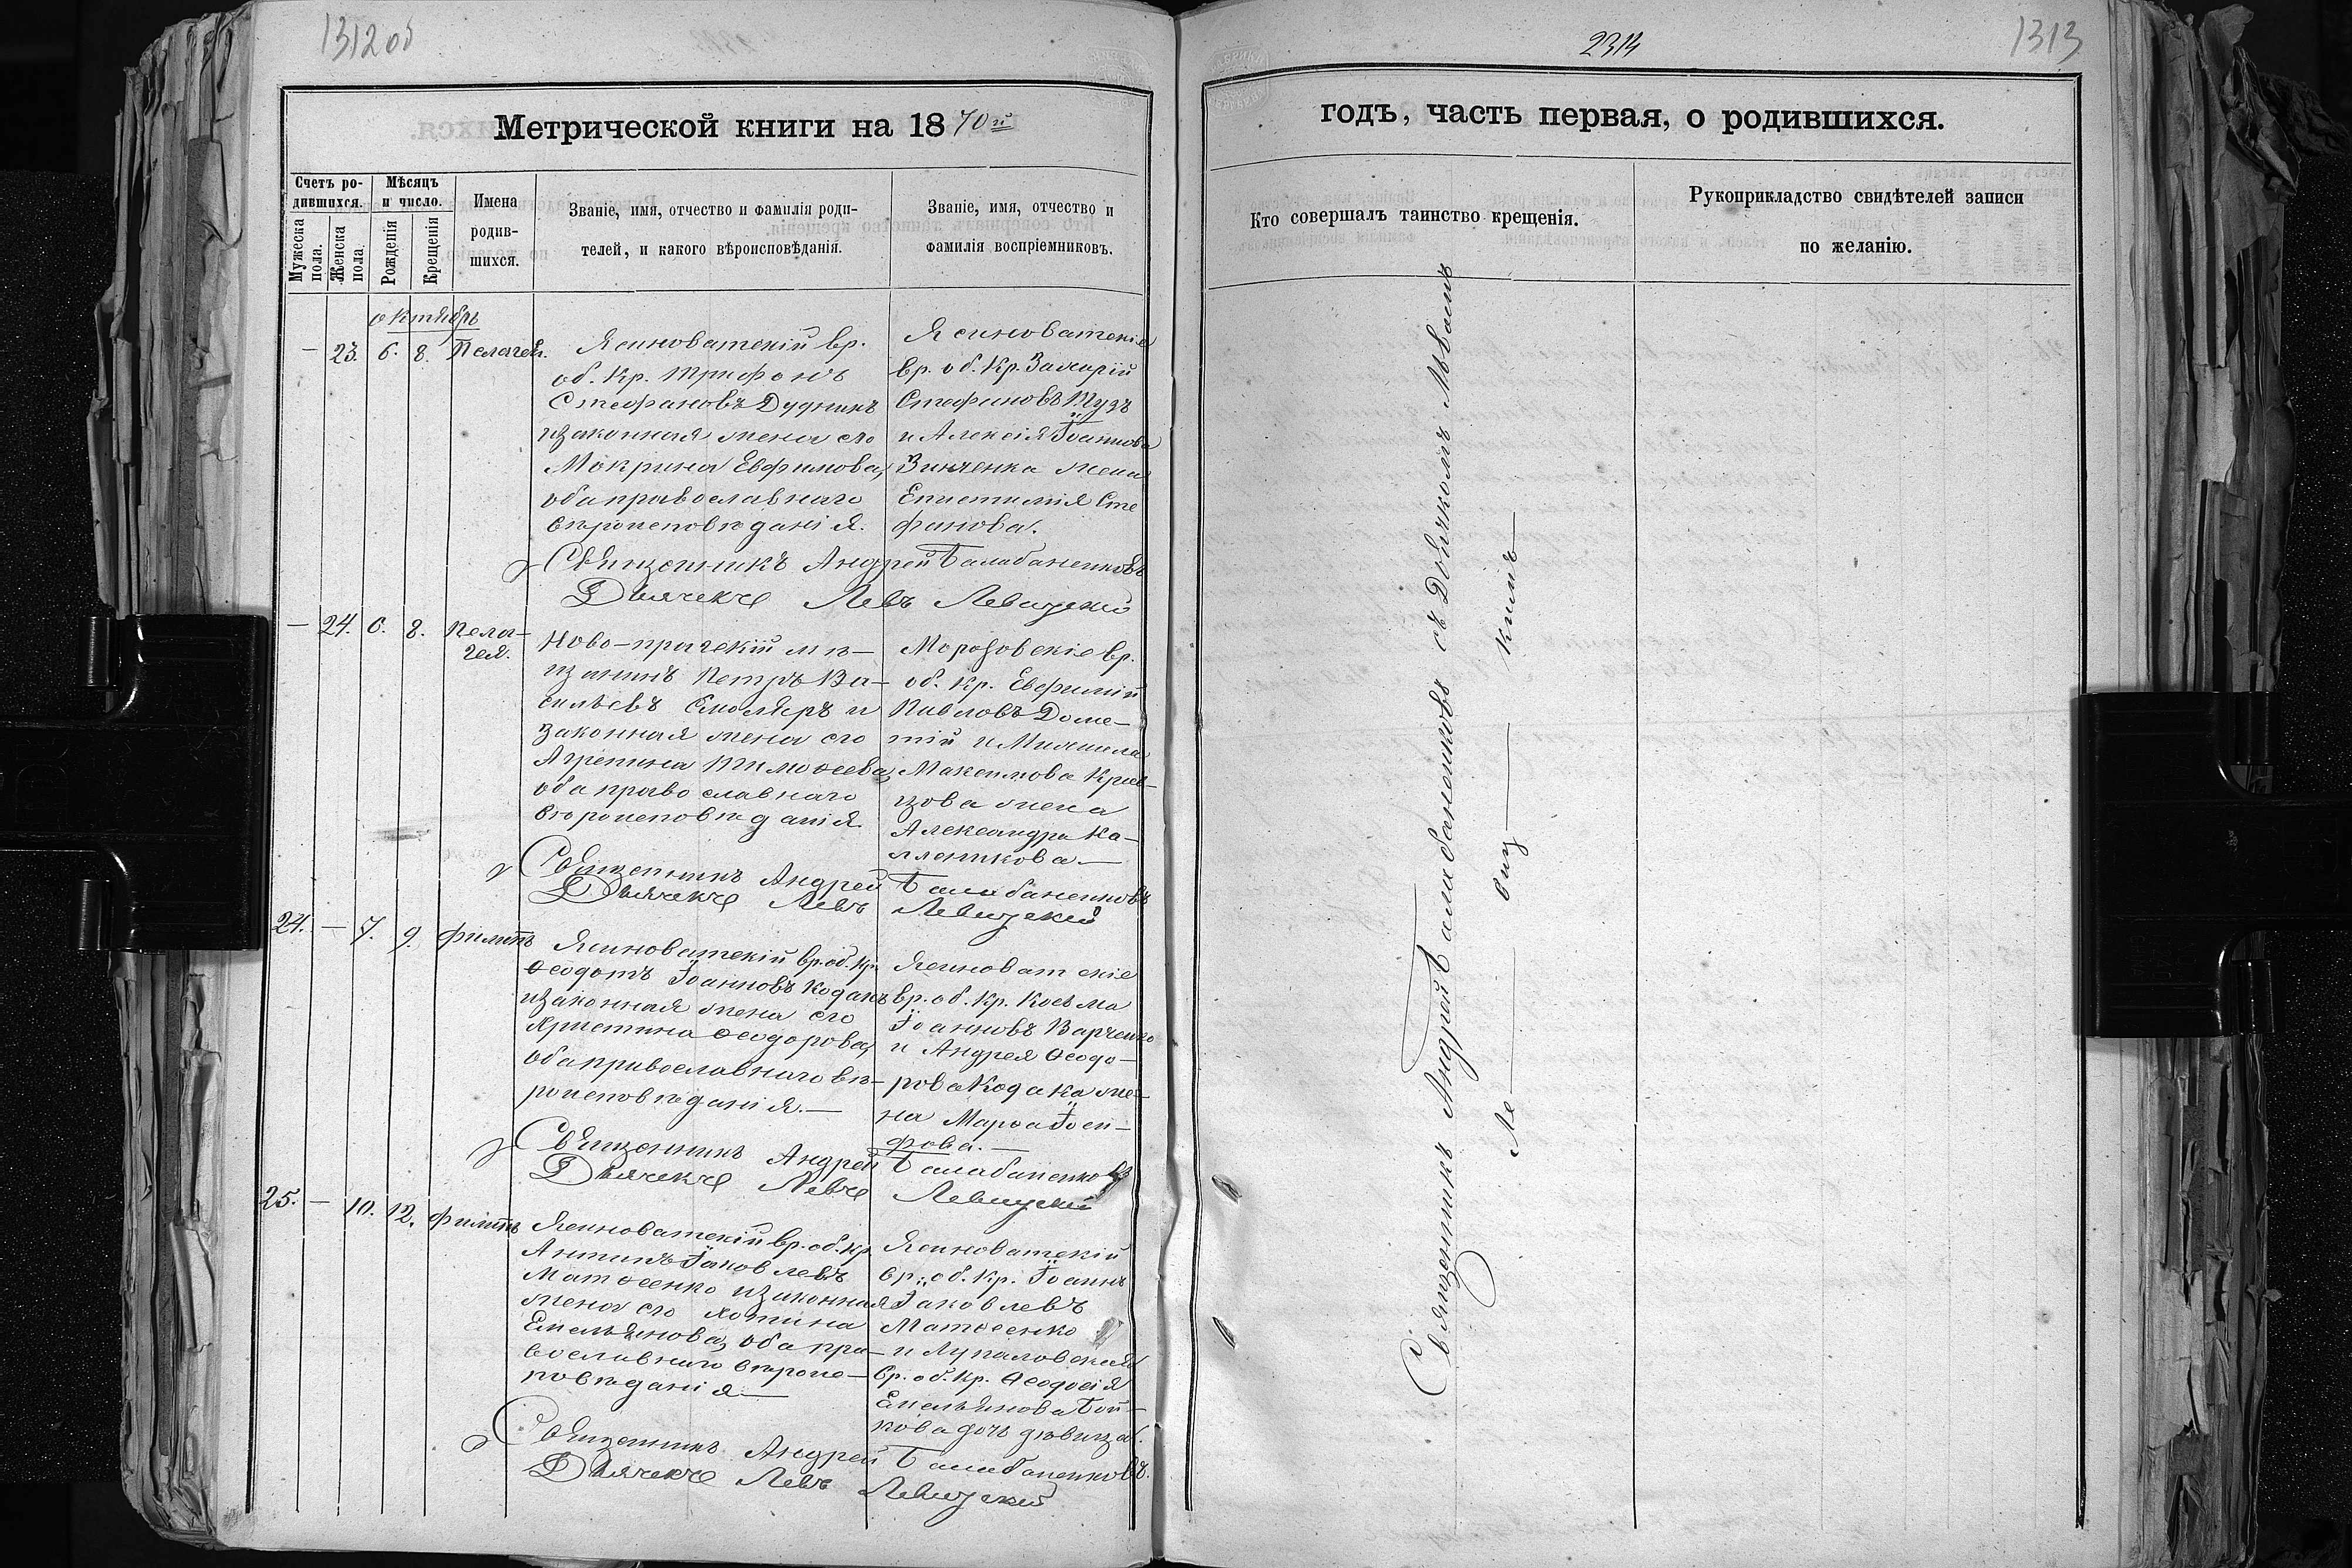 1312 об
Метрической книги на 18 70й
Счетъ ро-
дившихся.
Мужеска
пола.
Женска
пола.
Мѣсяцъ
и число.
Рожденія
Крещенія
Имена
родив-
шихся.
Званіе, имя, отчество и фамилія роди-
телей, и какого вѣроисповѣданія.
Званіе, имя, отчество и
фамилія воспріемниковъ.
октябрь
— 23. 6. 8. Пелагея.
Ясиноватскій вр.
об. Кр. Трифонъ
Стефановъ Дудникъ
и законная жена его
Мокрина Евфимова,
оба православнаго
вѣроисповѣданія.
Ясиноватскіе
вр. об. Кр. Захарій
Стефановъ Тузъ
и Алексія Іоаннова
Зинченка жена
Епистимія Сте
фанова.
Священникъ Андрей Балабаненковъ
Дьячекъ Левъ Левицкій
— 24. 6. 8. Пела-
гея.
Ново-прагскій мѣ-
щанинъ Петръ Ва-
сильевъ Смоляръ и
законная жена его
Агрепина Тимоѳеева,
оба православнаго
вѣроисповѣданія.
Морозовскіе вр.
об. Кр. Евфимій
Павловъ Доме-
тій и Михаила
Максимова Крив-
цова жена
Александра Ка-
лленикова.—
Священникъ Андрей Балабаненковъ
Дьячекъ Левъ Левицкій
24. — 7. 9. Филипъ
Ясиноватскій вр. об. Кр.
Ѳеодотъ Іоанновъ Кодакъ
и законная жена его
Христина Ѳеодорова,
оба православнаго вѣ-
роисповѣданія.—
Ясиноватскіе
вр. об. Кр. Косьма
Іоанновъ Варченко
и Андрея Ѳеодо-
рова Кодака же-
на Марѳа Іоси-
фова.—
Священникъ Андрей Балабаненковъ
Дьячекъ Левъ Левицкій
25. — 10. 12. Филипъ
Ясиноватскій вр. об. Кр.
Антипъ Іаковлевъ
Матѳеенко и законная
жена его Хотина
Емельянова, оба пра-
вославнаго вѣроис-
повѣданія—
Ясиноватскій
вр. об. Кр. Іоаннъ
Іаковлевъ
Матѳеенко
и Лупаловская
вр. об. Кр. Ѳеодосія
Емельянова Бой-
кова дочь дѣвица.
Священникъ Андрей Балабаненковъ.
Дьячекъ Левъ Левицкій
2314
1313
годъ, часть первая, о родившихся.
Кто совершалъ таинство крещенія.
Рукоприкладство свидѣтелей записи
по желанію.
Священникъ Андрей Балабаненковъ съ Дьячкомъ Львомъ
Ле— виц— кимъ—